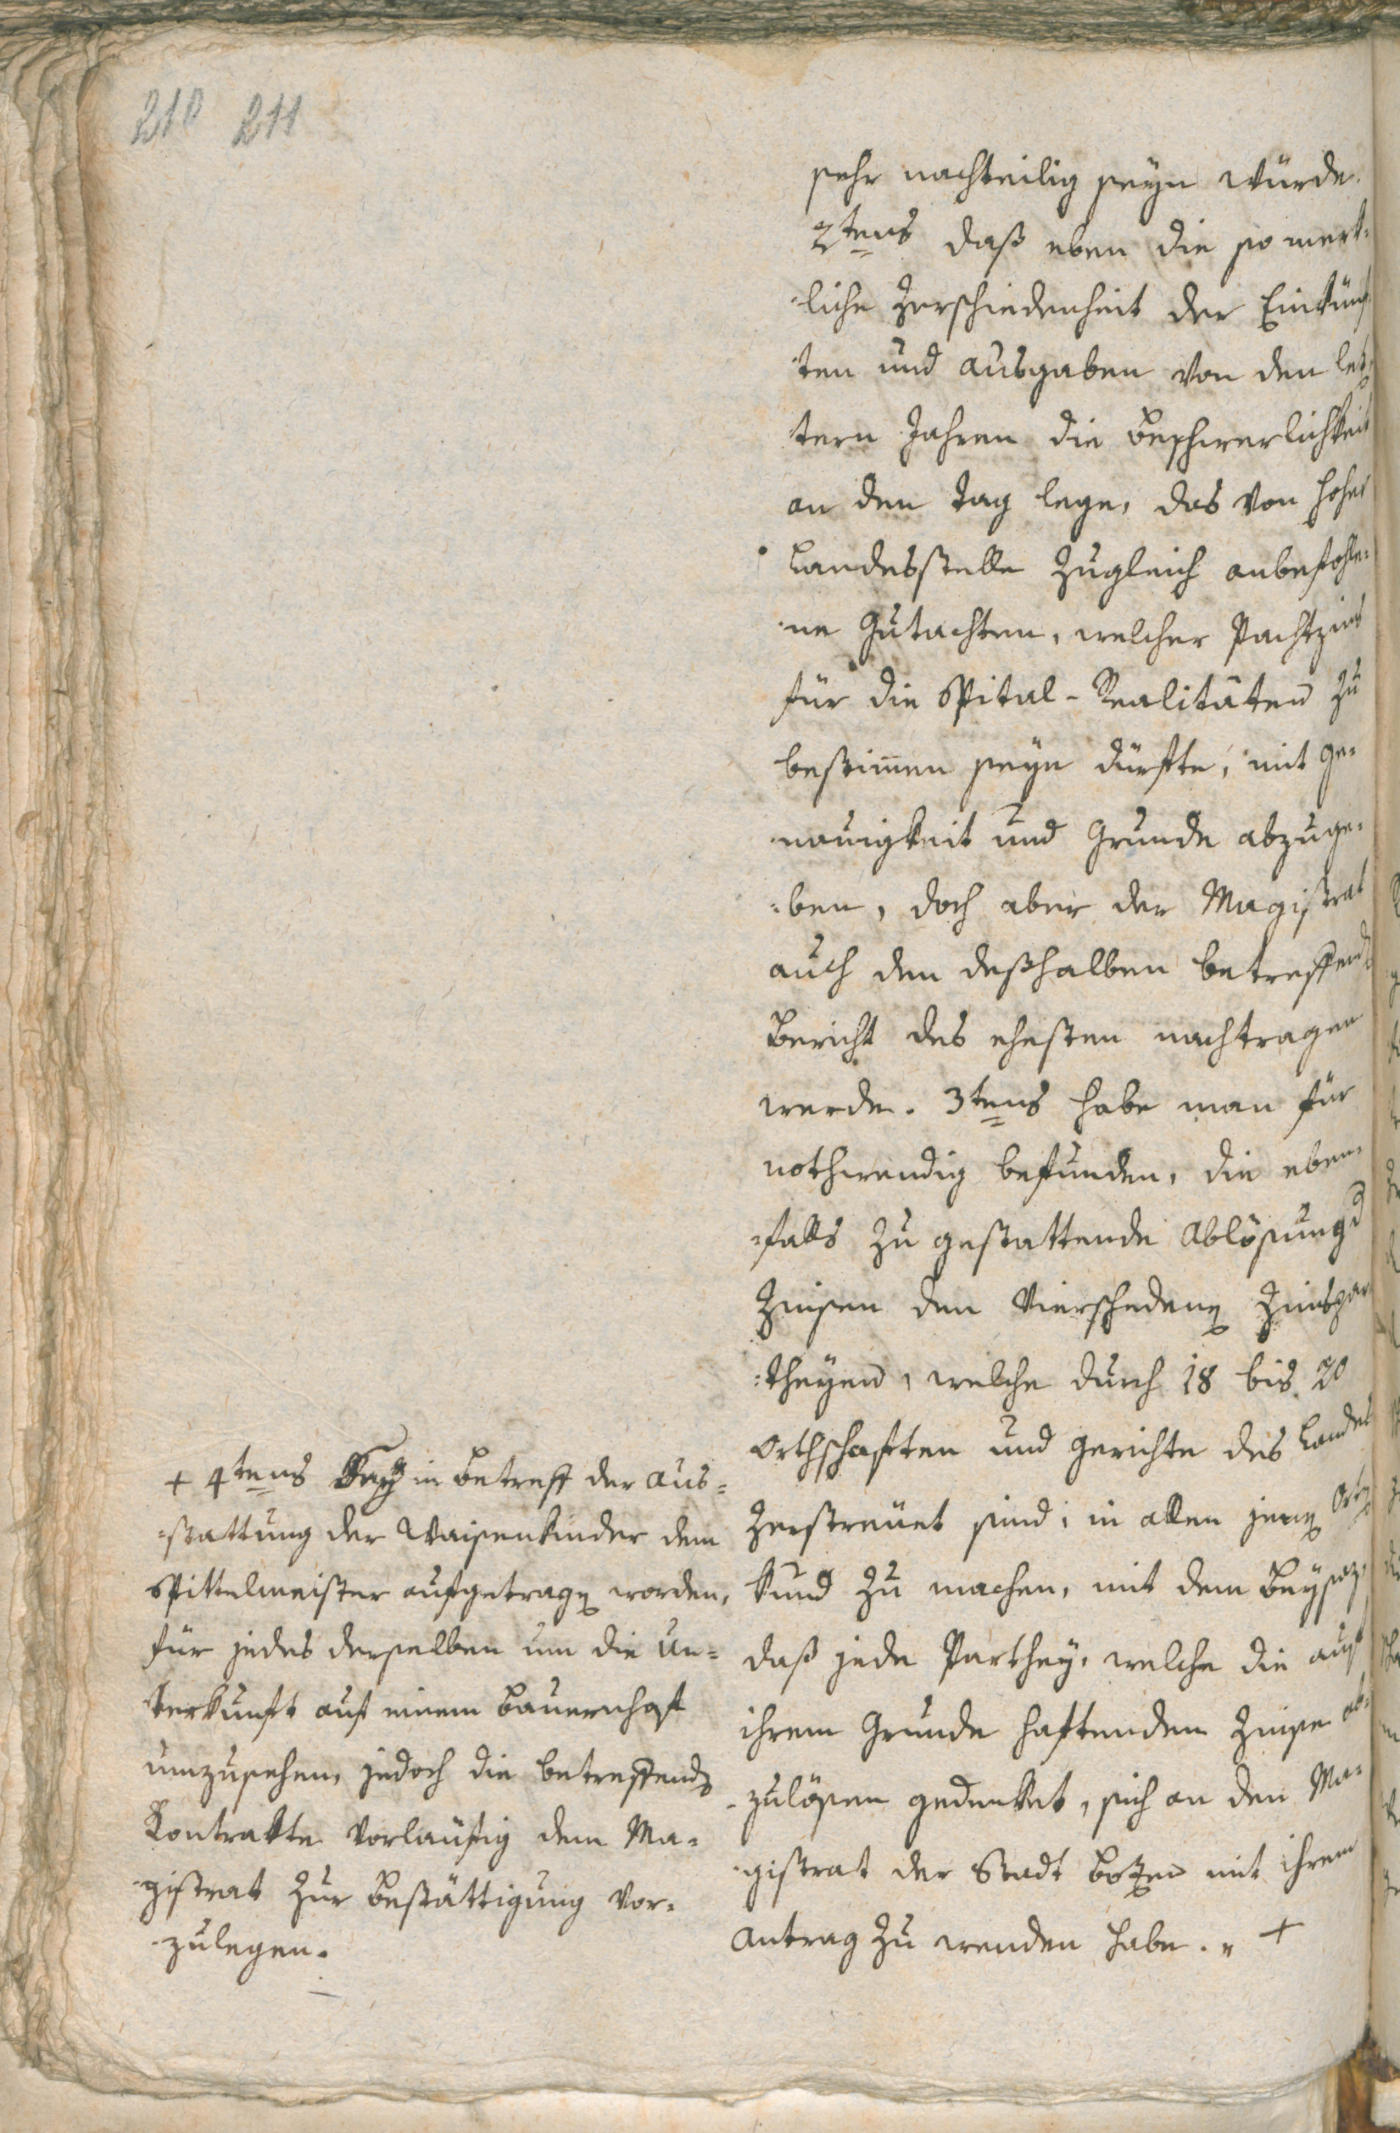 210 211
sehr nachteilig seyn würde.
2tens daß eben die so merk-
liche Zerschiedenheit der Einkünf-
ten und ausgaben von den letz-
tern Jahren die beschwerlichkeit
an den Tag lege, das von hoher
Landesstelle zugleich anbefohle-
ne Gutachten, welcher Pachtzins
für die Spital-Realitäten zu
bestimen seyn dürfte, mit Ge-
nauigkeit und Grunde abzuge-
ben, doch aber der Magistrat
auch den deßhalben betreffend
Bericht des ehesten nachtragen
werde. 3tens habe man für
nothwendig befunden, die eben-
falls zu gestattende Ablösung d
Zinsen den Zinspar
theyen, welche durch 18 bis 20
Orthschaften und Gerichte des Landes
zerstreuet sind, in allen jenen Ort
kund zu machen, mit dem Beysaz,
daß jede Parthey, welche die auf
ihrem Grunde haftenden Zinse ab-
zulösen gedenket, sich an den Ma-
gistrat der Stadt Botzen mit ihrem
Antrag zu wenden habe. +
+ 4tens Sey in Betreff der Aus-
stattung der Waisenkinder dem
Spittelmeister aufgetragen worden,
für jedes derselben um die Un-
terkunft auf einem Bauernhof
umzusehen, jedoch die betreffenden
Kontrakte vorläufig dem Ma-
gistrat zur Bestättigung vor-
zulegen.